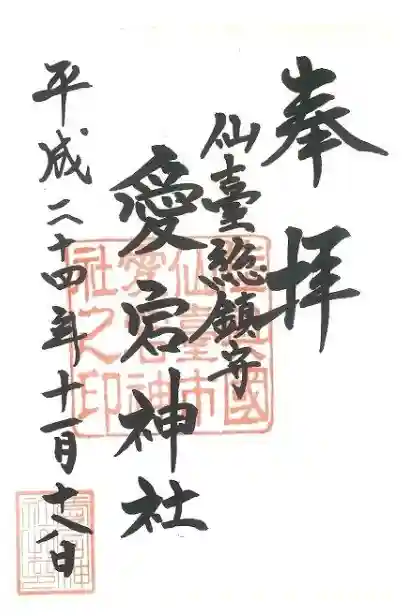 奉拝
仙臺總鎮守
愛宕神社
平成二十四年十一月十八日
仙臺市
愛宕神
社之印